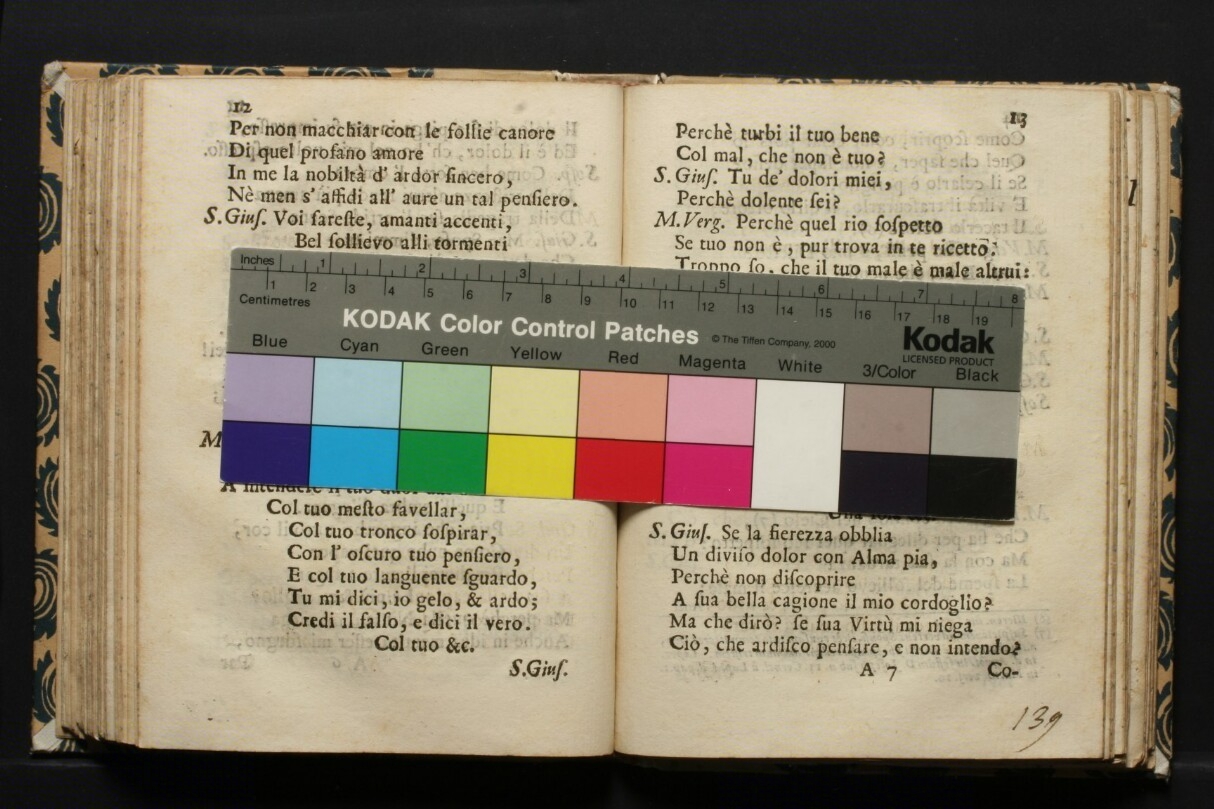 12
Per non macchiar con le follie canore
Di quel profano amore
In me la nobiltà d' ardor sincero,
Nè men s' affidi all' aure un tal pensiero.
S.Gius. Voi sareste, amanti accenti,
Bel sollievo alli tormenti
M
A intendere il tuo
Col tuo mesto favellar,
Col tuo tronco sospirar,
Con l' oscuro tuo pensiero,
E col tuo languente sguardo,
Tu mi dici, io gelo, & ardo;
Credi il falso, e dici il vero.
Col tuo &c.
S.Gius.
13
Perchè turbi il tuo bene
Col mal, che non è tuo?
S. Gius. Tu de' dolori miei,
Perchè dolente sei?
M.Verg. Perchè quel rio sospetto
Se tuo non è, pur trova in te ricetto?
Troppo so, che il tuo male è male altrui:
S. Gius. Se la fierezza obblia
Un diviso dolor con Alma pia,
Perchè non discoprire
A sua bella cagione il mio cordoglio?
Ma che dirò? se sua Virtù mi niega
Ciò, che ardisco pensare, e non intendo?
A 7 Co-
139
Inches 1 2 3 4 5 6 7 8
Centimetres 1 2 3 4 5 6 7 8 9 10 11 12 13 14 15 16 17 18 19
KODAK Color Control Patches © The Tiffen Company, 2000
Kodak
LICENSED PRODUCT
Blue Cyan Green Yellow Red Magenta White 3/Color Black